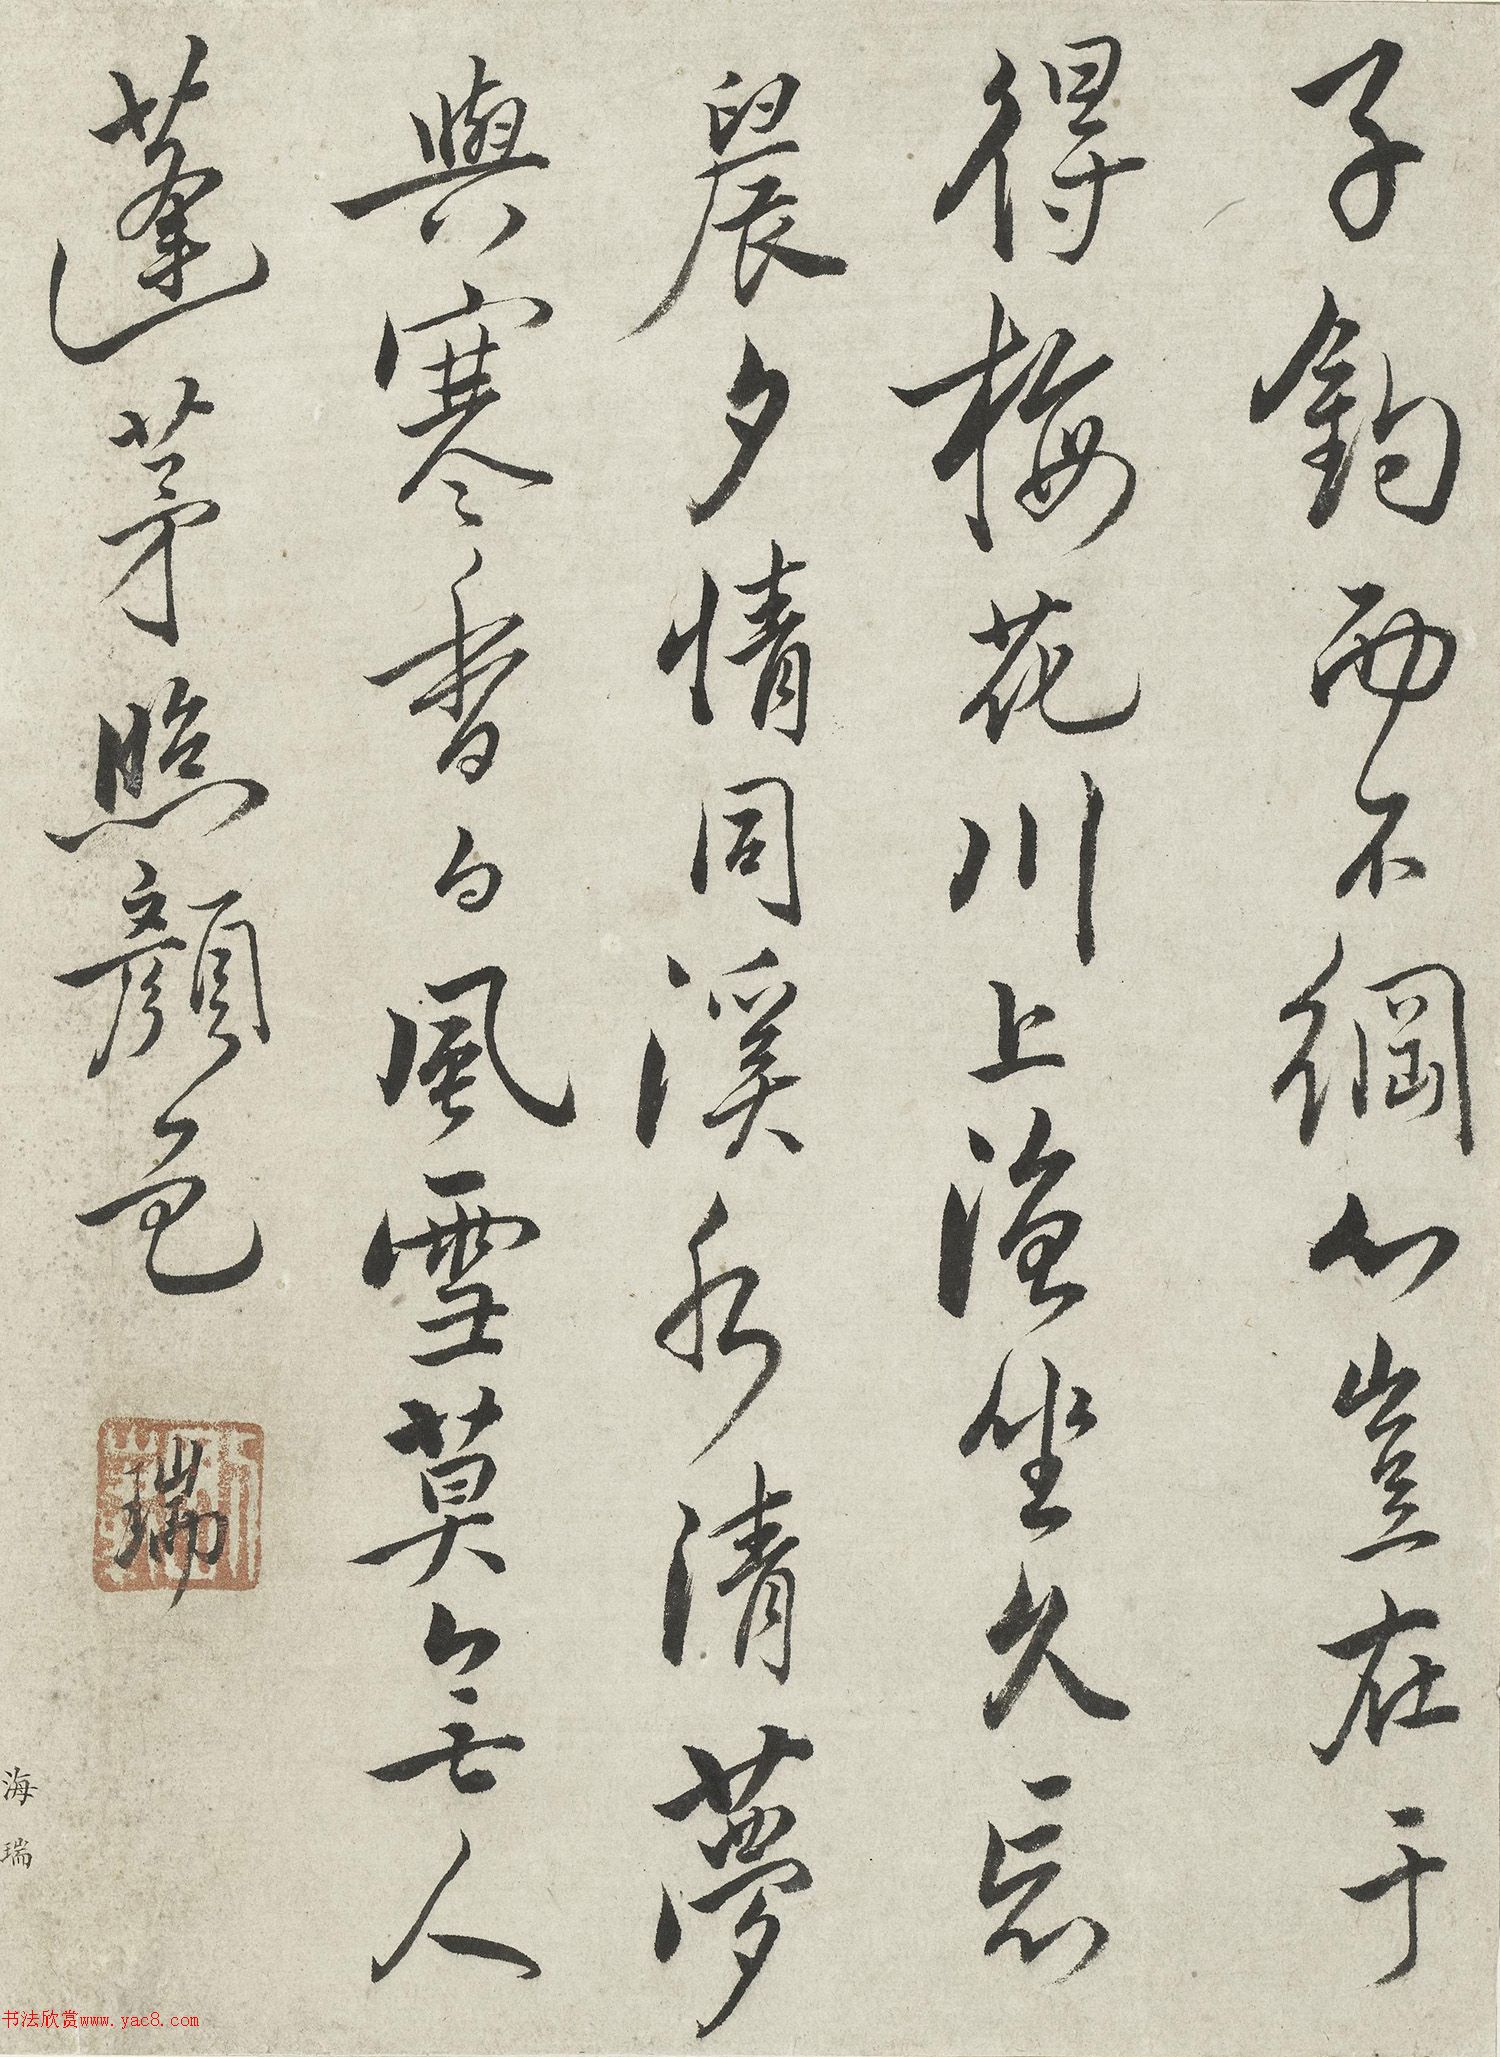 子釣而不綱心豈在于
得梅花川上漁坐久忘
晨夕情同溪水清夢
與寒香白風雪莫無人
蓬茅照顏色
瑞
海瑞
书法欣赏www.yac8.com